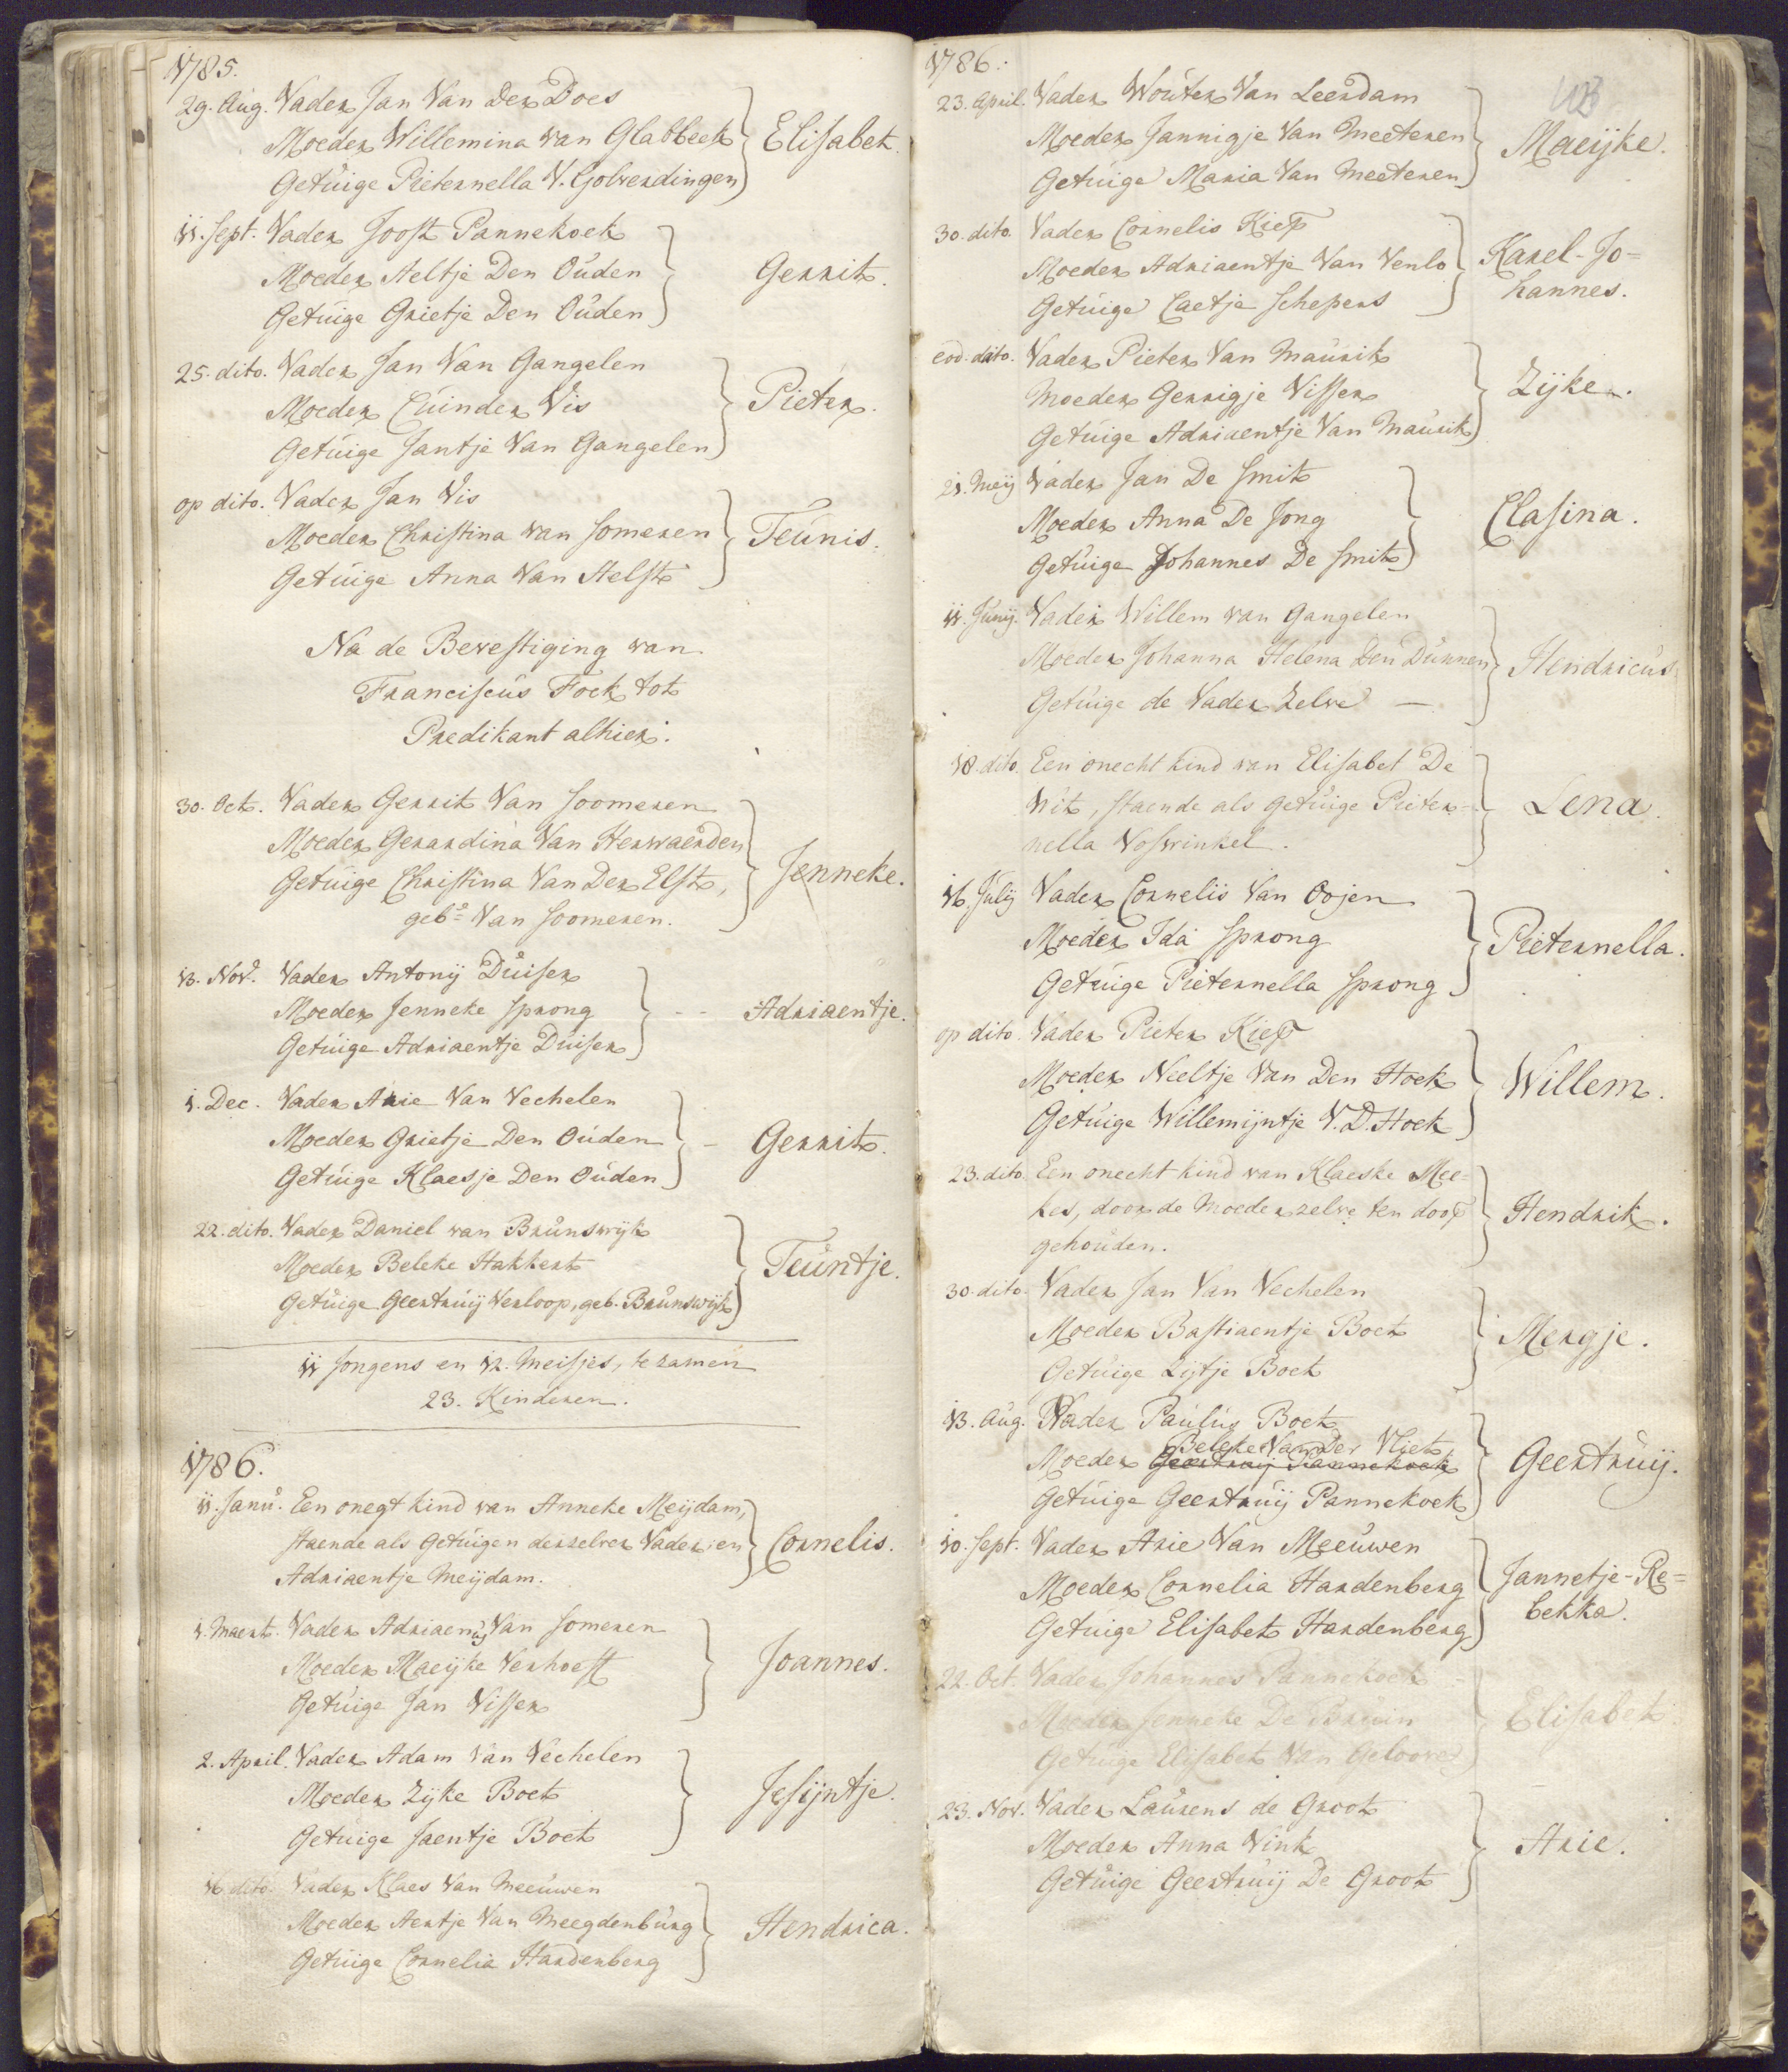 1785.
29. Aug. Vader Jan Van Der Does
Moeder Willemina van Glabbeek
Elisabet.
Getuige Pieternella V. Golverdingen
11. Sept. Vader Joost Pannekoek
Moeder Aeltje Den Ouden
Gerrit.
Getuige Grietje Den Ouden
25. dito. Vader Jan Van Gangelen
Moeder Cuinder Vis
Pieter.
Getuige Jantje Van Gangelen
op dito. Vader Jan Vis
Moeder Christina van Someren
Teunis.
Getuige Anna Van Aelst
Na de Bevestiging van
Franciscus Fock tot
Predikant alhier.
30. Oct. Vader Gerrit Van Soomeren
Moeder Gerardina Van Herwaerden
Getuige Christina Van Der Elst,
Jenneke.
gebe. Van Soomeren.
13. Nov. Vader Antony Duiser
Moeder Jenneke Sprong
- - Adriaentje.
Getuige Adriaentje Duiser
1. Dec. Vader Arie Van Vechelen
Moeder Grietje Den Ouden
- Gerrit.
Getuige Klaesje Den Ouden
22. dito. Vader Daniel van Brunswijk
Moeder Beleke Hakkert
Teuntje.
Getuige Geertruij Verloop, geb. Brunswijk
11 Jongens en 12. Meisjes, te zamen
23. Kinderen.
1786.
11. Janu. Een onegt kind van Anneke Meijdam,
staende als Getuigen derzelver Vader en
Cornelis.
Adriaentje Meijdam.
1. Maert. Vader Adriaenus Van Someren
Moeder Maeijke Verhoeff
Joannes.
Getuige Jan Visser
2. April. Vader Adam Van Vechelen
Moeder Zijke Boet
Jesijntje.
Getuige Jaentje Boet
16 dito. Vader Klaes Van Meeuwen
Moeder Aertje Van Meegdenburg
Hendrica.
Getuige Cornelia Hardenberg
1786.
23. April. Vader Wouter Van Leerdam
Moeder Jannigje Van Meeteren
Maeijke.
Getuige Maria Van Meeteren
30. dito. Vader Cornelis Kiep
Moeder Adriaentje Van Venlo
Karel-Jo=
hannes.
Getuige Caetje Schepers
eod. dito. Vader Pieter Van Maurik
Moeder Gerrigje Visser
Zijke.
Getuige Adriaentje Van Maurik
21. Meij Vader Jan De Smit
Moeder Anna De Jong
Clasina.
Getuige Johannes De Smit
11. Junij. Vader Willem van Gangelen
Moeder Johanna Helena Den Dunnen
Hendricus
Getuige de Vader Zelve —
18. dito. Een onecht kind van Elisabet De
Wit, staende als getuige Pieter=
Lena.
nella Voswinkel.
16. July Vader Cornelis Van Oojen
Moeder Ida Sprong
Pieternella.
Getuige Pieternella Sprong
op dito. Vader Pieter Kiep
Moeder Neeltje Van Den Hoek
Willem.
Getuige Willemijntje V. D. Hoek
23. dito. Een onecht kind van Klaeske Mee=
kes, door de Moeder zelve ten doop
Hendrik.
gehouden.
30. dito. Vader Jan Van Vechelen
Moeder Bastiaentje Boet
Mergje.
Getuige Zijtje Boet
13. Aug. Vader Paulus Boet
Beleke Van Der Vliet
Moeder Geertruij Pannekoek
Geertruij.
Getuige Geertruij Pannekoek
10. Sept. Vader Arie Van Meeuwen
Moeder Cornelia Hardenberg
Jannetje-Re=
bekka.
Getuige Elisabet Hardenberg
22. Oct. Vader Johannes Pannekoek
Moeder Jenneke De Bruin
Elisabet.
Getuige Elisabet Van Geloove
23. Nov. Vader Laurens de Groot
Moeder Anna Vink
Arie.
Getuige Geertruij De Groot